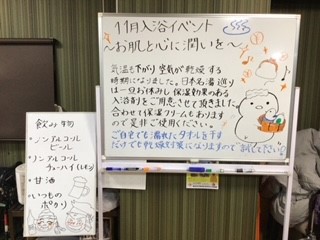 11月入浴イベント
～お肌と心に潤いを～
気温も下がり空気が乾燥する
時期になりました。日本名湯巡り
は一旦お休みし保湿効果のある
入浴剤をご用意させて頂きました。
合わせて保湿クリームもあります
ので是非ご使用ください。
ご自宅でも濡れたタオルを干す
だけでも乾燥対策になりますので
試して下さい!
飲み物
・ノンアルコール
ビール
・ノンアルコール
チューハイ(レモン)
・甘酒
・いつもの
ポカリ